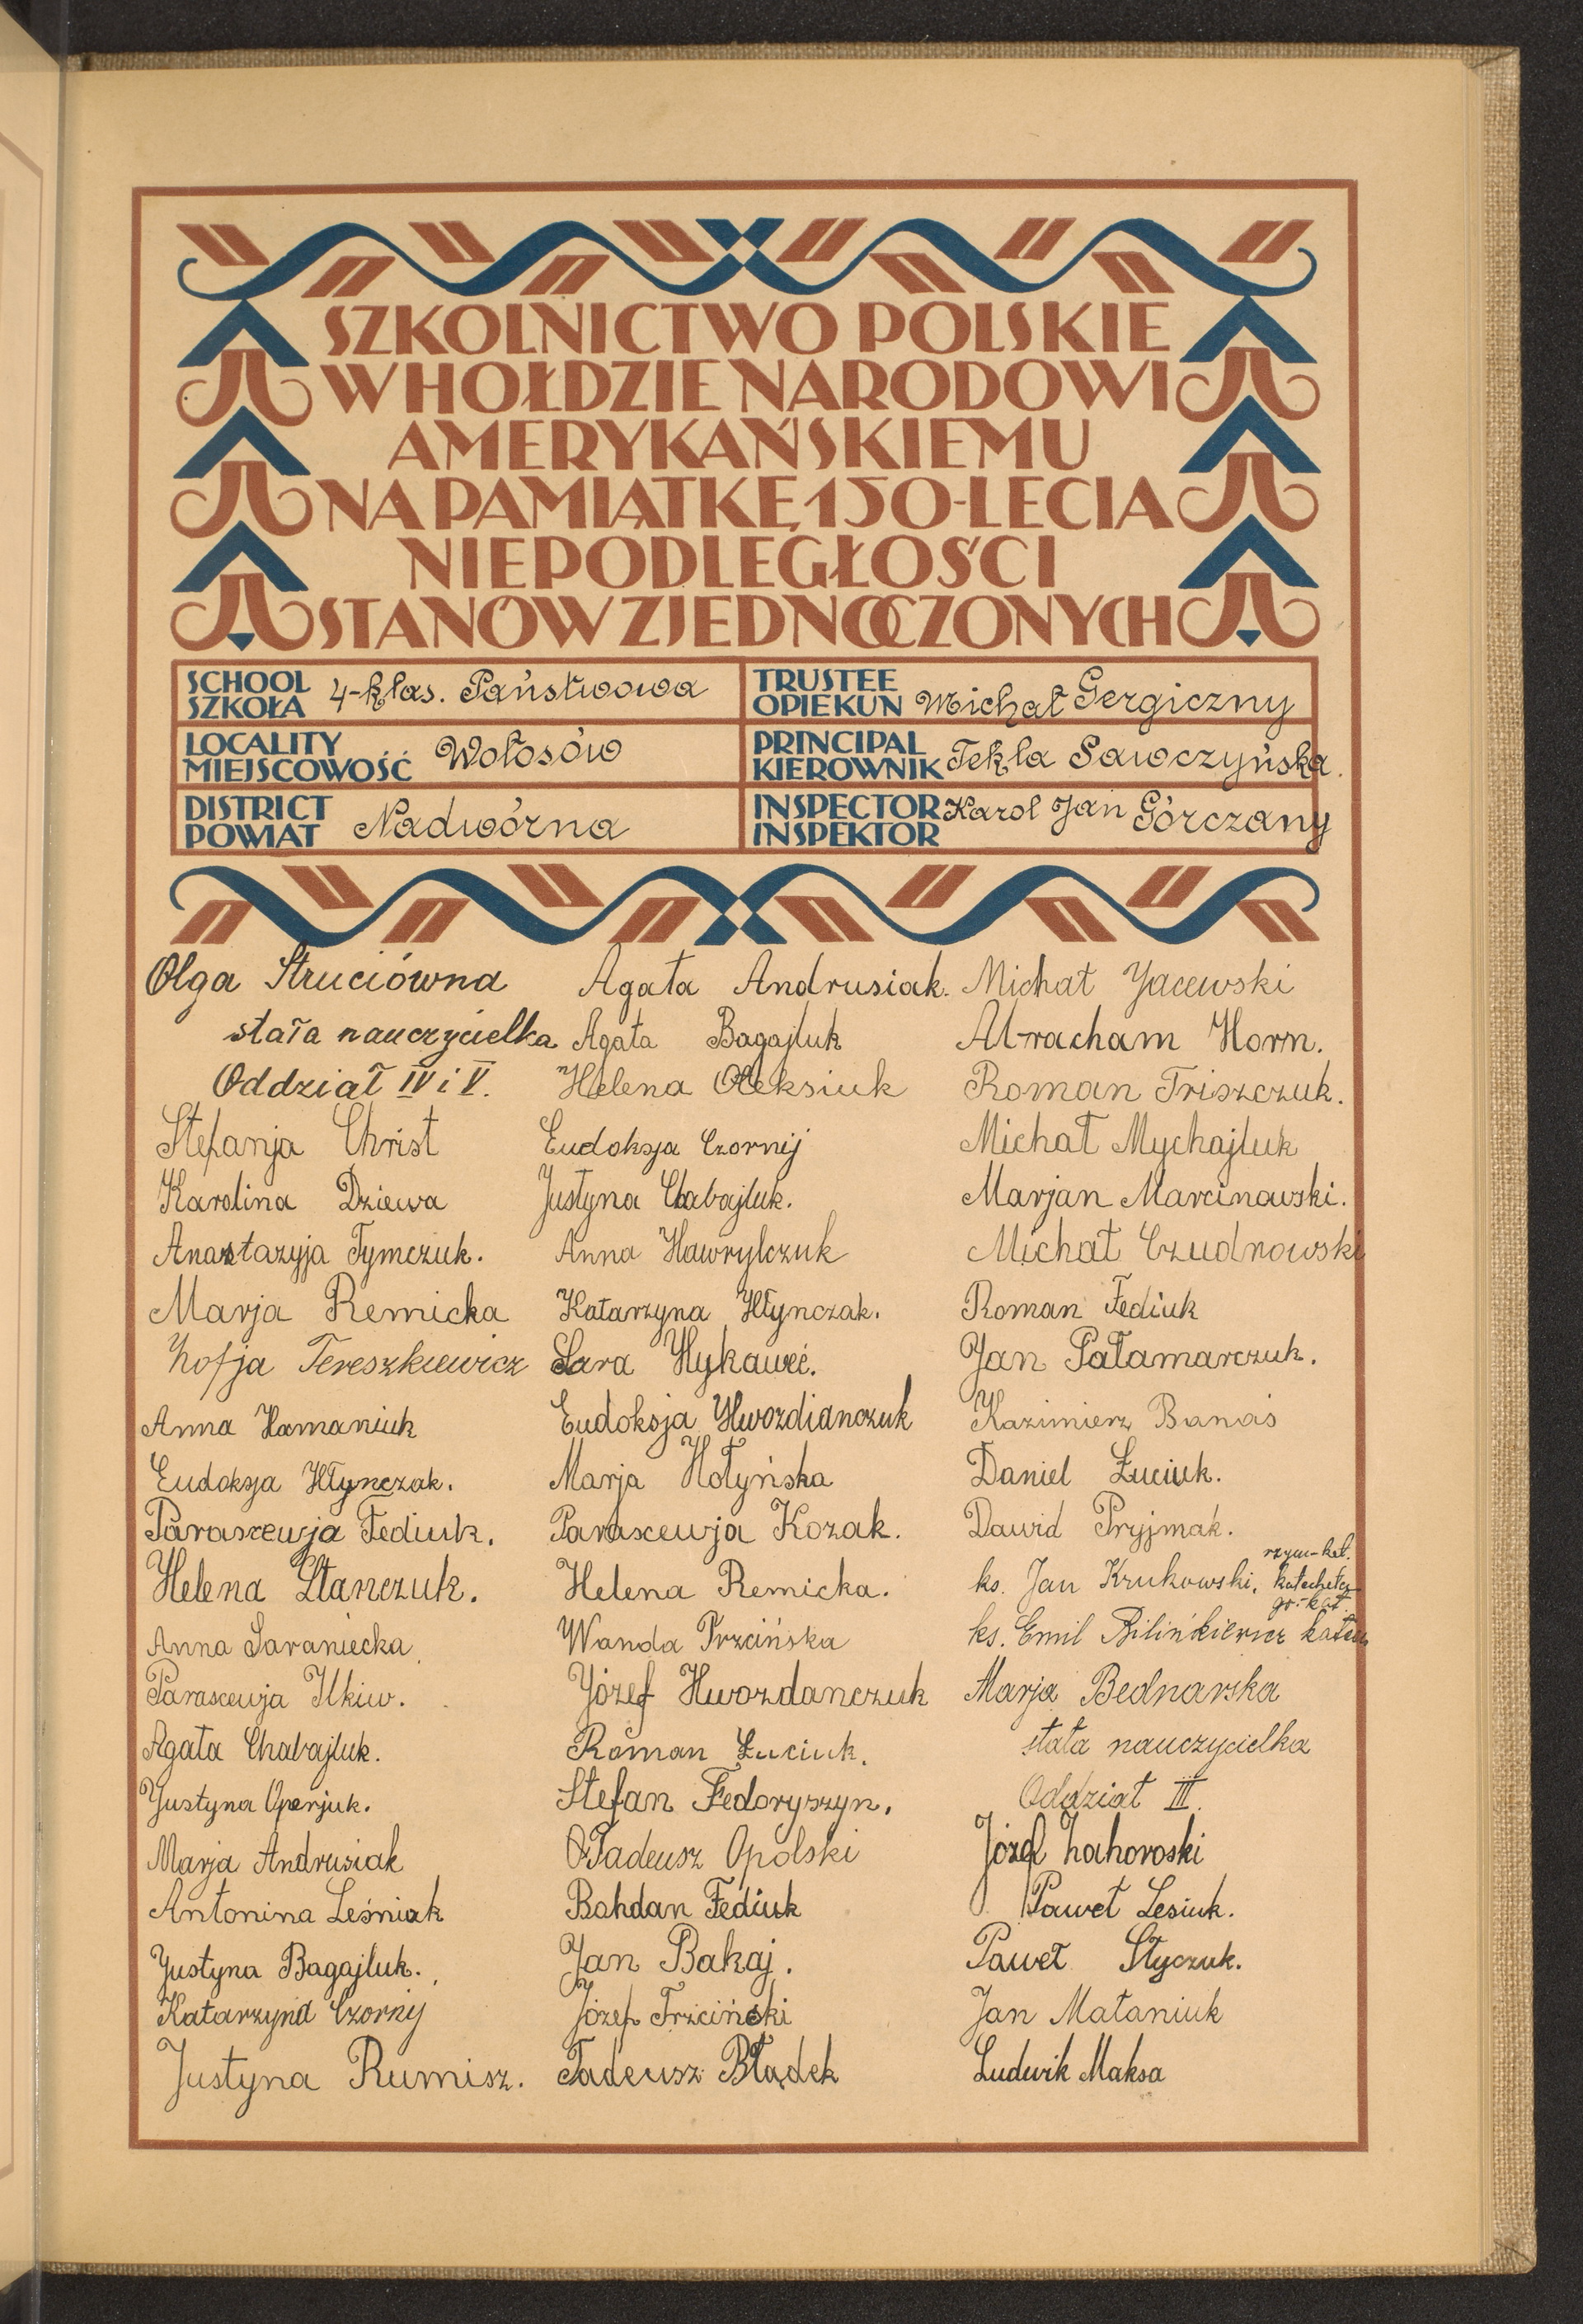 SZKOLNICTWO POLSKIE
W HOŁDZIE NARODOWI
AMERYKAŃSKIEMU
NA PAMIĄTKĘ 150-LECIA
NIEPODLEGŁOŚCI
STANÓW ZJEDNOCZONYCH
SCHOOL
SZKOŁA
4-klas. Państwowa
TRUSTEE
OPIEKUN
Michał Gergiczny
LOCALITY
MIEJSCOWOŚĆ
Wołosów
PRINCIPAL
KIEROWNIK
Tekla Sawczyńska.
DISTRICT
POWIAT
Nadwórna
INSPECTOR
INSPEKTOR
Karol Jan Górczany
Olga Struciówna
stała nauczycielka
Oddział IV i V.
Stefanja Christ
Karolina Dziewa
Anastazyja Tymczuk.
Marja Remicka
Zofja Tereszkiewicz
Anna Hamaniuk
Eudoksja Hłynczak.
Parascewja Fediuk.
Helena Stanczuk.
Anna Saraniecka
Parascewja Ilkiw.
Agata Chabajluk.
Justyna Operjuk.
Marja Andrusiak
Antonina Leśniak
Justyna Bagajluk.
Katarzyna Czornij
Justyna Rumisz.
Agata Andrusiak.
Agata Bagajluk
Helena Oleksiuk
Eudoksja Czornij
Justyna Chabajluk.
Anna Hawrylczuk
Katarzyna Hłynczak.
Sara Hykaweć.
Eudoksja Hwozdianczuk
Marja Hołyńska
Parascewja Kozak.
Helena Remicka.
Wanda Trzcińska
Józef Hwozdanczuk
Roman Łuciuk.
Stefan Fedoryszyn.
Tadeusz Opolski
Bohdan Fediuk
Jan Bakaj.
Józef Trzciński
Tadeusz Błądek
Michał Jacewski
Abracham Horn.
Roman Triszczuk.
Michał Mychajluk
Marjan Marcinowski.
Michał Czudnowski
Roman Fediuk
Jan Pałamarczuk.
Kazimierz Banaś
Daniel Łuciuk.
Dawid Pryjmak.
ks. Jan Krukowski, rzym-kat. katecheta
ks. Emil Bilińkiewicz gr.-kat.
Marja Bednarska
stała nauczycielka
Oddział III.
Józef Zahoroski
Paweł Lesiuk.
Paweł Styczuk.
Jan Mataniuk
Ludwik Maksa